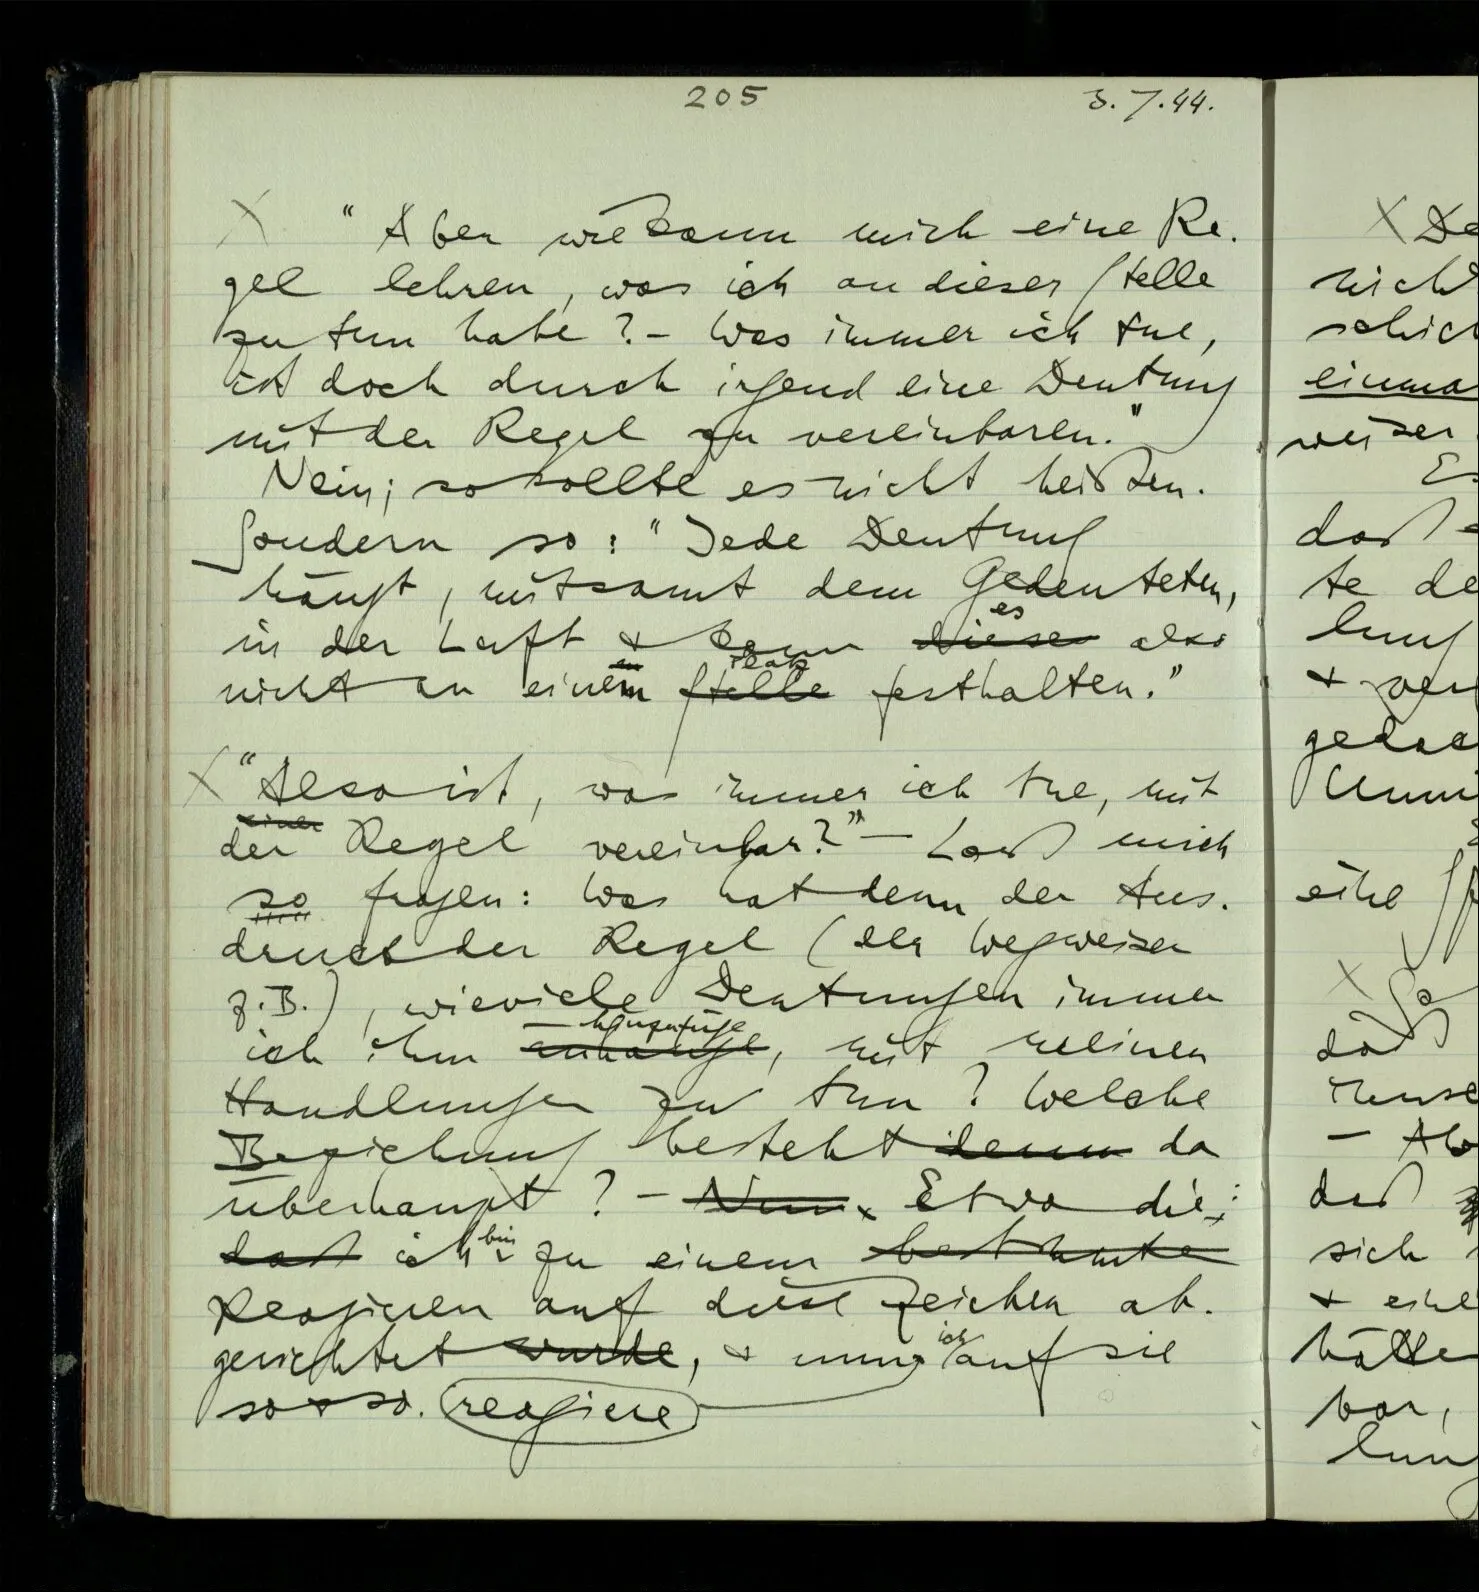 205 3.7.44.
"Aber wie kann mich eine Re-
gel lehren, was ich an dieser Stelle
zu tun habe? – Was immer ich tue,
ist doch durch irgend eine Deutung
mit der Regel zu vereinbaren."
Nein; so sollte es nicht heißen.
Sondern so: "Jede Deutung
hängt, mitsamt dem Gedeuteten,
es
in der Luft & kann dieses also
Platz
nicht an einem Stelle festhalten."
"Also ist, was immer ich tue, mit
einer
der Regel vereinbar?" – Laß mich
so fragen: Was hat denn der Aus-
druck der Regel (der Wegweiser
z.B.), wieviele Deutungen immer
hinzufüge
ich ihm anhänge, mit meinen
Handlungen zu tun? Welche
Beziehung besteht denn da
überhaupt? – Nun, Etwa die:
bin
daß ich zu einem bestimmte
Reagieren auf diese Zeichen ab-
ich
gerichtet wurde, & nun auf sie
so & so. reagiere
X De
nich
schic
einma
weiser
Es
daß
te de
lung
& ver
gedac
eine
so
daß
– Ab
daß
sich
& eine
hätte
bar,
lung